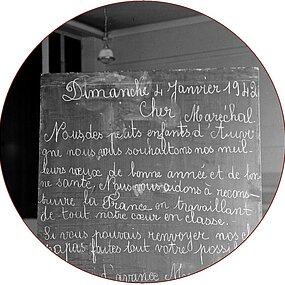 Dimanche 4 Janvier 1942
Cher Maréchal
Nous des petits enfants d'Auver
gne, nous vous souhaitons nos meil-
leurs vœux de bonne année et de bon
ne santé. Nous vous aidons à recons-
truire la France en travaillant
de tout notre cœur en classe.
Si vous pouvais renvoyer nos
papas faites tout votre possi
d'avance M